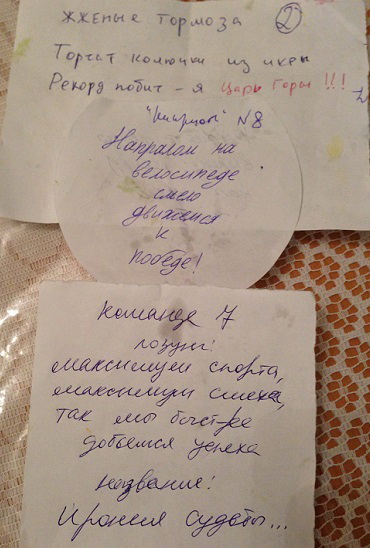 жженые тормоза 2
Торчат колючки из икры
Рекорд побит - я царь горы!!!
"Кирпич" №8
Напролом на
велосипеде
смело
движемся
к
победе!
Команда 7
лозунг:
максимум спорта,
максимум смеха,
так мы быстрее
добьемся успеха
название:
Ирония судьбы...